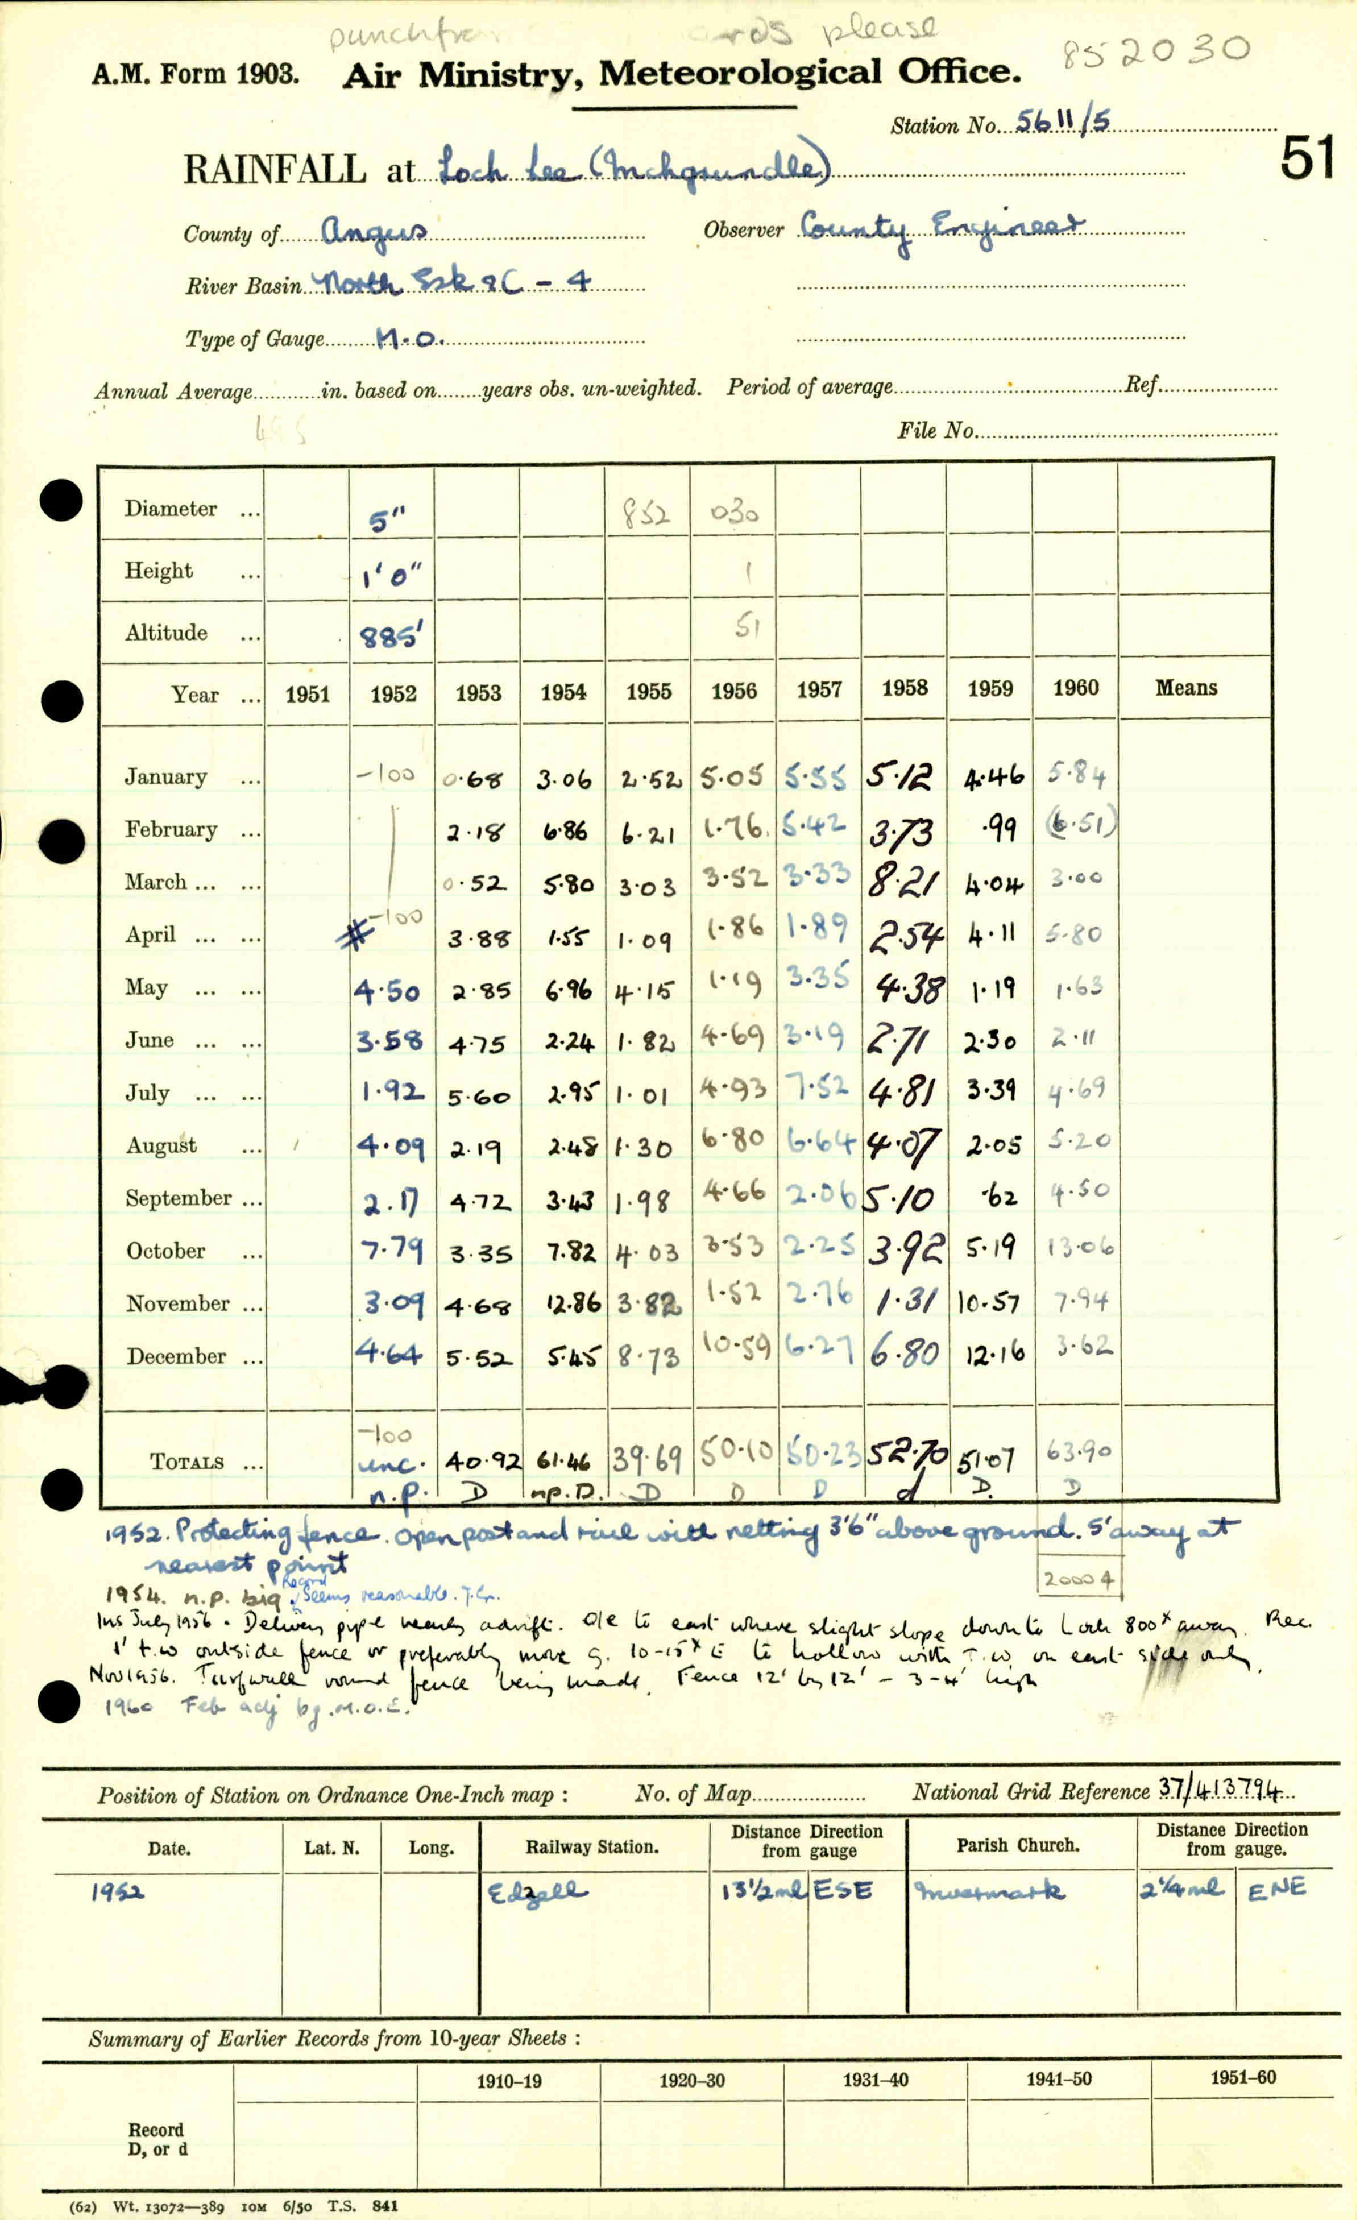 punchfr ards please
852030
A.M. Form 1903. Air Ministry, Meteorological Office.
Station No. 5611/5
51
RAINFALL at Loch Lee (Inchgrundle)
County of Angus Observer County Engineer
River Basin North Esk 8C - 4
Type of Gauge M.O.
Annual Average in. based on years obs. un-weighted. Period of average Ref.
File No.
Diameter ... 5" 852 030
Height ... 1' 0" 1
Altitude ... 885' 51
Year ... 1951 1952 1953 1954 1955 1956 1957 1958 1959 1960 Means
January ... -100 0.68 3.06 2.52 5.05 5.55 5.12 4.46 5.84
February ... 2.18 6.86 6.21 1.76 5.42 3.73 .99 (6.51)
March ... ... 0.52 5.80 3.03 3.52 3.33 8.21 4.04 3.00
April ... ... # -100 3.88 1.55 1.09 1.86 1.89 2.54 4.11 5.80
May ... ... 4.50 2.85 6.96 4.15 1.19 3.35 4.38 1.19 1.63
June ... ... 3.58 4.75 2.24 1.82 4.69 3.19 2.71 2.30 2.11
July ... ... 1.92 5.60 2.95 1.01 4.93 7.52 4.81 3.39 4.69
August ... 4.09 2.19 2.48 1.30 6.80 6.64 4.07 2.05 5.20
September ... 2.17 4.72 3.43 1.98 4.66 2.06 5.10 .62 4.50
October ... 7.79 3.35 7.82 4.03 3.53 2.25 3.92 5.19 13.06
November ... 3.09 4.68 12.86 3.82 1.52 2.76 1.31 10.57 7.94
December ... 4.64 5.52 5.45 8.73 10.59 6.27 6.80 12.16 3.62
-100
TOTALS ... unc. 40.92 61.46 39.69 50.10 50.23 52.70 51.07 63.90
n.p. D np.D. D D D d D. D
1952. Protecting fence. open post and rail with netting 3'6" above ground. 5' away at
nearest point
20004
1954. n.p. big Record Seems reasonable.
Ins July 1956. Delivery pipe nearly adrift. O/e to east where slight slope down to Loch 800x away. Rec.
1' t.w outside fence or preferably move g. 10-15x E to hollow with T.W. on east side only.
Nov 1956. Turf wall round fence being made. Fence 12' by 12' - 3-4' high
1960 Feb adj by M.O.E.
Position of Station on Ordnance One-Inch map : No. of Map National Grid Reference 37/413794
Date. Lat. N. Long. Railway Station. Distance Direction from gauge Parish Church. Distance Direction from gauge.
1952 Edzell 13½ ml ESE Invermark 2¼ ml ENE
Summary of Earlier Records from 10-year Sheets :
1910–19 1920–30 1931–40 1941–50 1951–60
Record
D, or d
(62) Wt. 13072—389 10M 6/50 T.S. 841